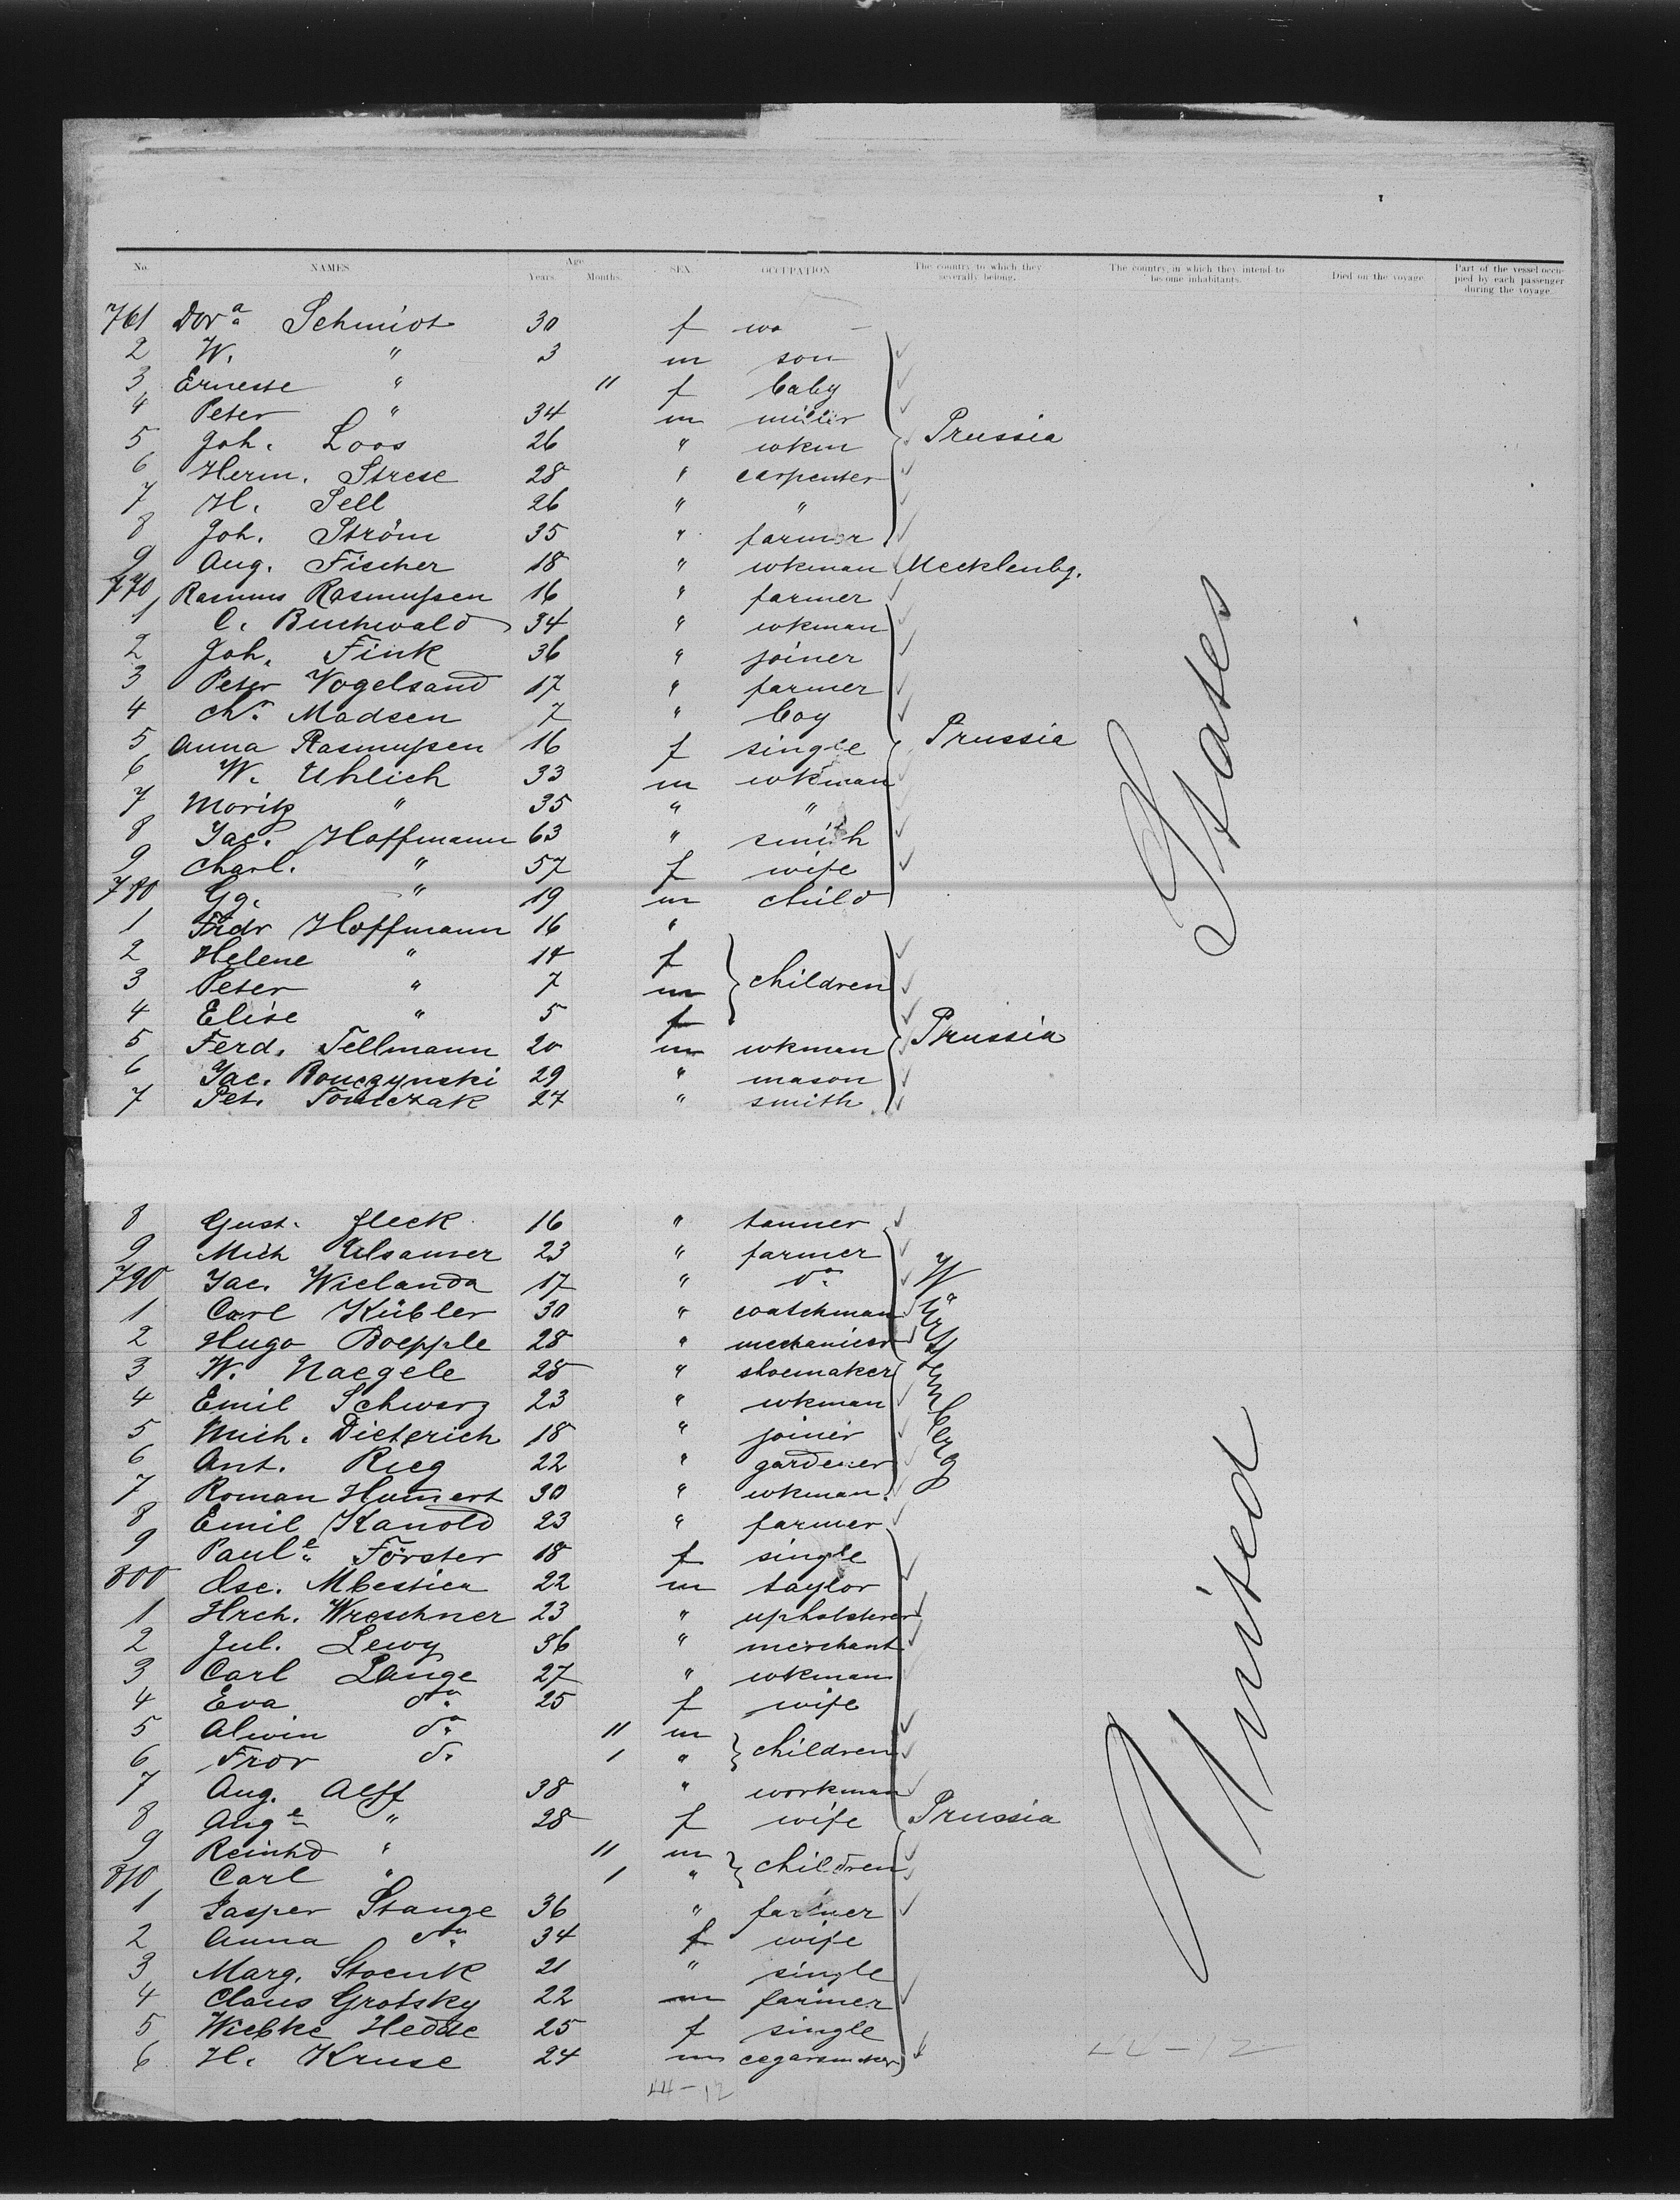 No. NAMES Age Years. Months. SEX. OCCUPATION The country to which they severally belong. The country, in which they intend to become inhabitants. Died on the voyage. Part of the vessel occupied by each passenger during the voyage.
761 Dorª Schmidt 30 f wo
2 W. " 3 m son
3 Erneste " 11 f baby
4 Peter " 34 m miller
5 Joh. Loos 26 " wkm Prussia
6 Herm. Strese 28 " carpenter
7 H. Sell 26 " "
8 Joh. Ström 35 " farmer
9 Aug. Fischer 18 " wkman Mecklenbg.
770 Rasmus Rasmussen 16 " farmer
1 C. Buchwald 34 " wkman
2 Joh. Fink 36 " joiner
3 Peter Vogelsand 17 " farmer
4 Chr. Madsen 7 " boy
5 Anna Rasmussen 16 f single Prussia
6 W. Uhlich 33 m wkman
7 Moritz " 35 " "
8 Jac. Hoffmann 63 " smith
9 Charl. " 57 f wife
780 Gg. " 19 m child
1 Frdr Hoffmann 16 "
2 Helene " 14 f
3 Peter " 7 m children
4 Elise " 5 f
5 Ferd. Tellmann 20 m wkman Prussia
6 Jac. Bonczynski 29 " mason
7 Pet. Tomczak 27 " smith
8 Gust. Fleck 16 " tanner
9 Mich Ulsamer 23 " farmer
790 Jac. Wielanda 17 " dº
1 Carl Kübler 30 " coatchman
2 Hugo Boepple 28 " mechanicer
3 W. Naegele 28 " shoemaker
4 Emil Schwarz 23 " wkman
5 Mich. Dieterich 18 " joiner
6 Ant. Rieg 22 " gardener
7 Roman Humert 30 " wkman
Württemberg
8 Emil Kanold 23 " farmer
9 Paulᵉ Förster 18 f single
800 Osc. Mbestica 22 m taylor
1 Hrch. Wreschner 23 " upholsterer
2 Jul. Lewy 36 " merchant
3 Carl Lange 27 " wkman
4 Eva dº 25 f wife
5 Alwin dº 11 m
6 Frdr d. 1 " children
7 Aug. Alff 38 " workman
8 Augᵉ " 28 f wife Prussia
9 Reinhd " 11 m
810 Carl " 1 " children
1 Jasper Stange 36 " farmer
2 Anna dto 34 f wife
3 Marg. Stoenk 21 " single
4 Claus Grotsky 22 m farmer
5 Wiebke Hedde 25 f single
6 H. Kruse 24 m cegarsmaker
44-12
44-12
United States